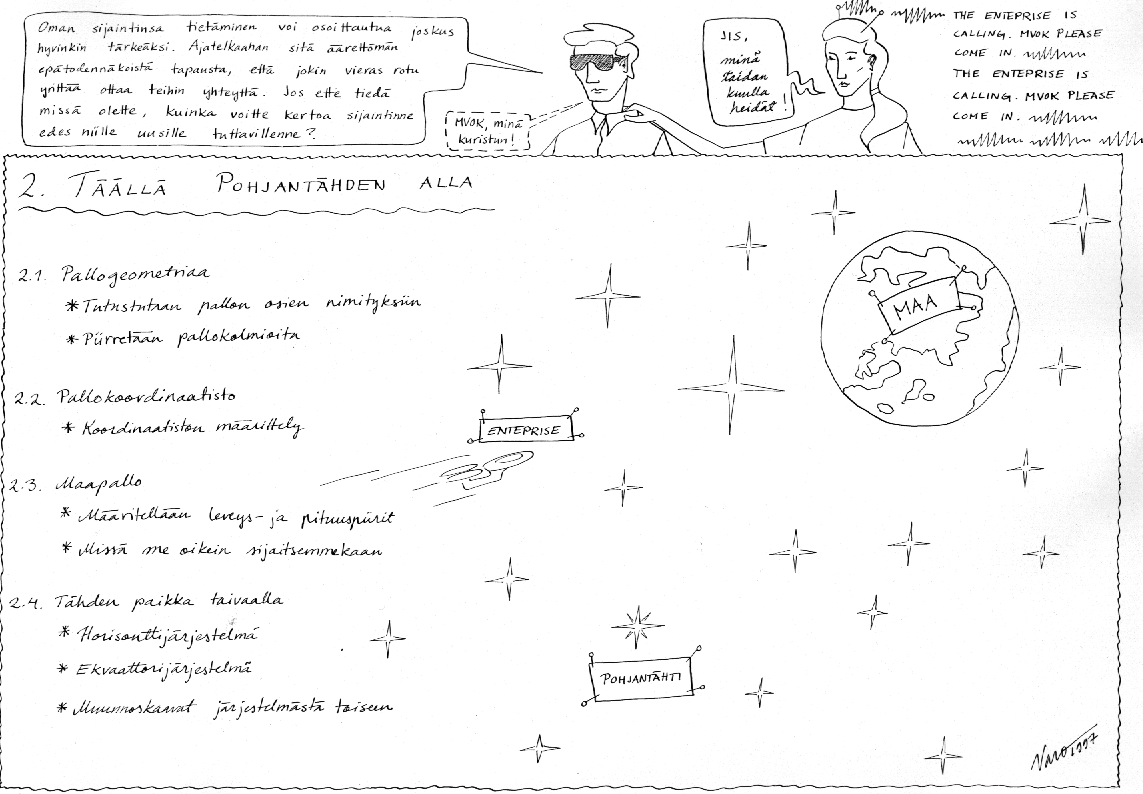 Oman sijaintinsa tietäminen voi osoittautua joskus
hyvinkin tärkeäksi. Ajatelkaahan sitä äärettömän
epätodennäköistä tapausta, että jokin vieras rotu
yrittää ottaa teihin yhteyttä. Jos ette tiedä
missä olette, kuinka voitte kertoa sijaintinne
edes niille uusille tuttavillenne?
MVOK, minä
kuristun!
JIS,
minä
taidan
kuulla
heidät!
THE ENTEPRISE IS
CALLING. MVOK PLEASE
COME IN.
THE ENTEPRISE IS
CALLING. MVOK PLEASE
COME IN.
2. TÄÄLLÄ POHJANTÄHDEN ALLA
2.1. Pallogeometriaa
* Tutustutaan pallon osien nimityksiin
* Piirretään pallokolmioita
2.2. Pallokoordinaatisto
* Koordinaatiston määrittely
2.3. Maapallo
* Määritellään leveys- ja pituuspiirit
* Missä me oikein sijaitsemmekaan
2.4. Tähden paikka taivaalla
* Horisonttijärjestelmä
* Ekvaattorijärjestelmä
* Muunnoskaavat järjestelmästä toiseen
MAA
ENTEPRISE
POHJANTÄHTI
Varo 1997